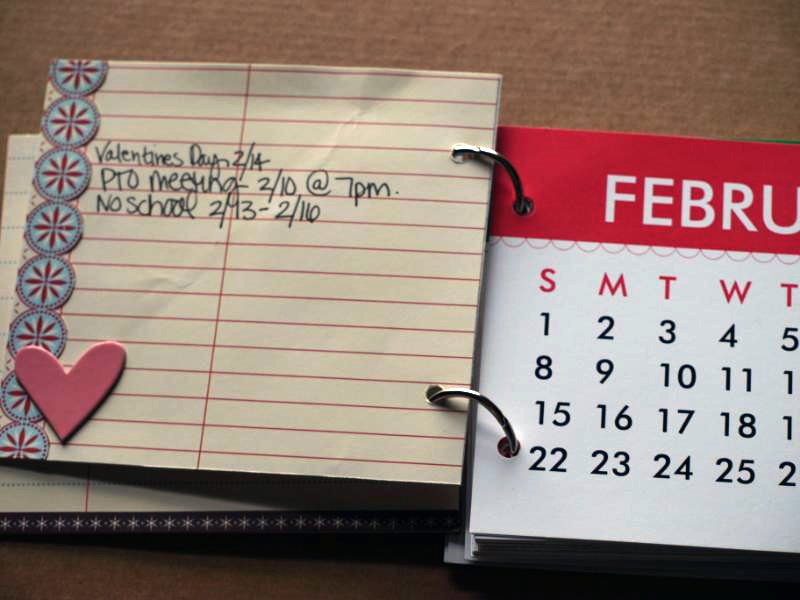 Valentines Day 2/14
PTO meeting - 2/10 @ 7pm.
No school 2/13 - 2/16
FEBRU
S M T W T
1 2 3 4 5
8 9 10 11 1
15 16 17 18 1
22 23 24 25 2